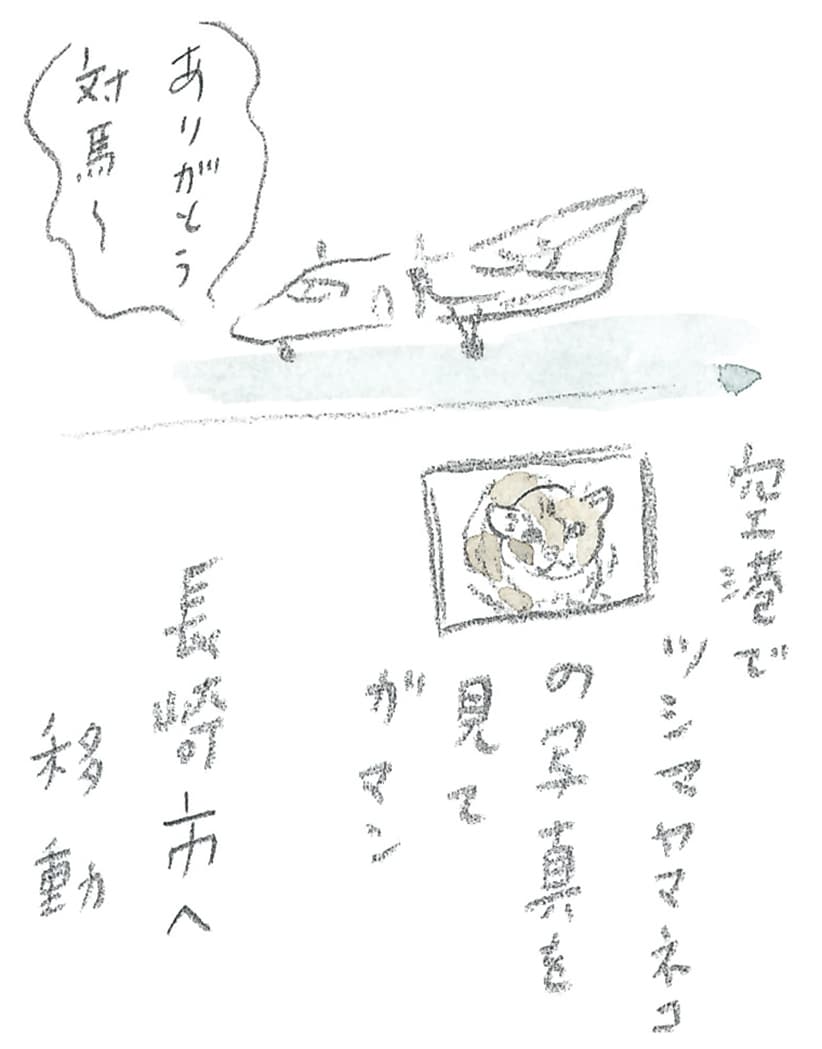 ありがとう
対馬〜
空港で
ツシマヤマネコ
の写真を
見て
ガマン
長崎市へ
移動